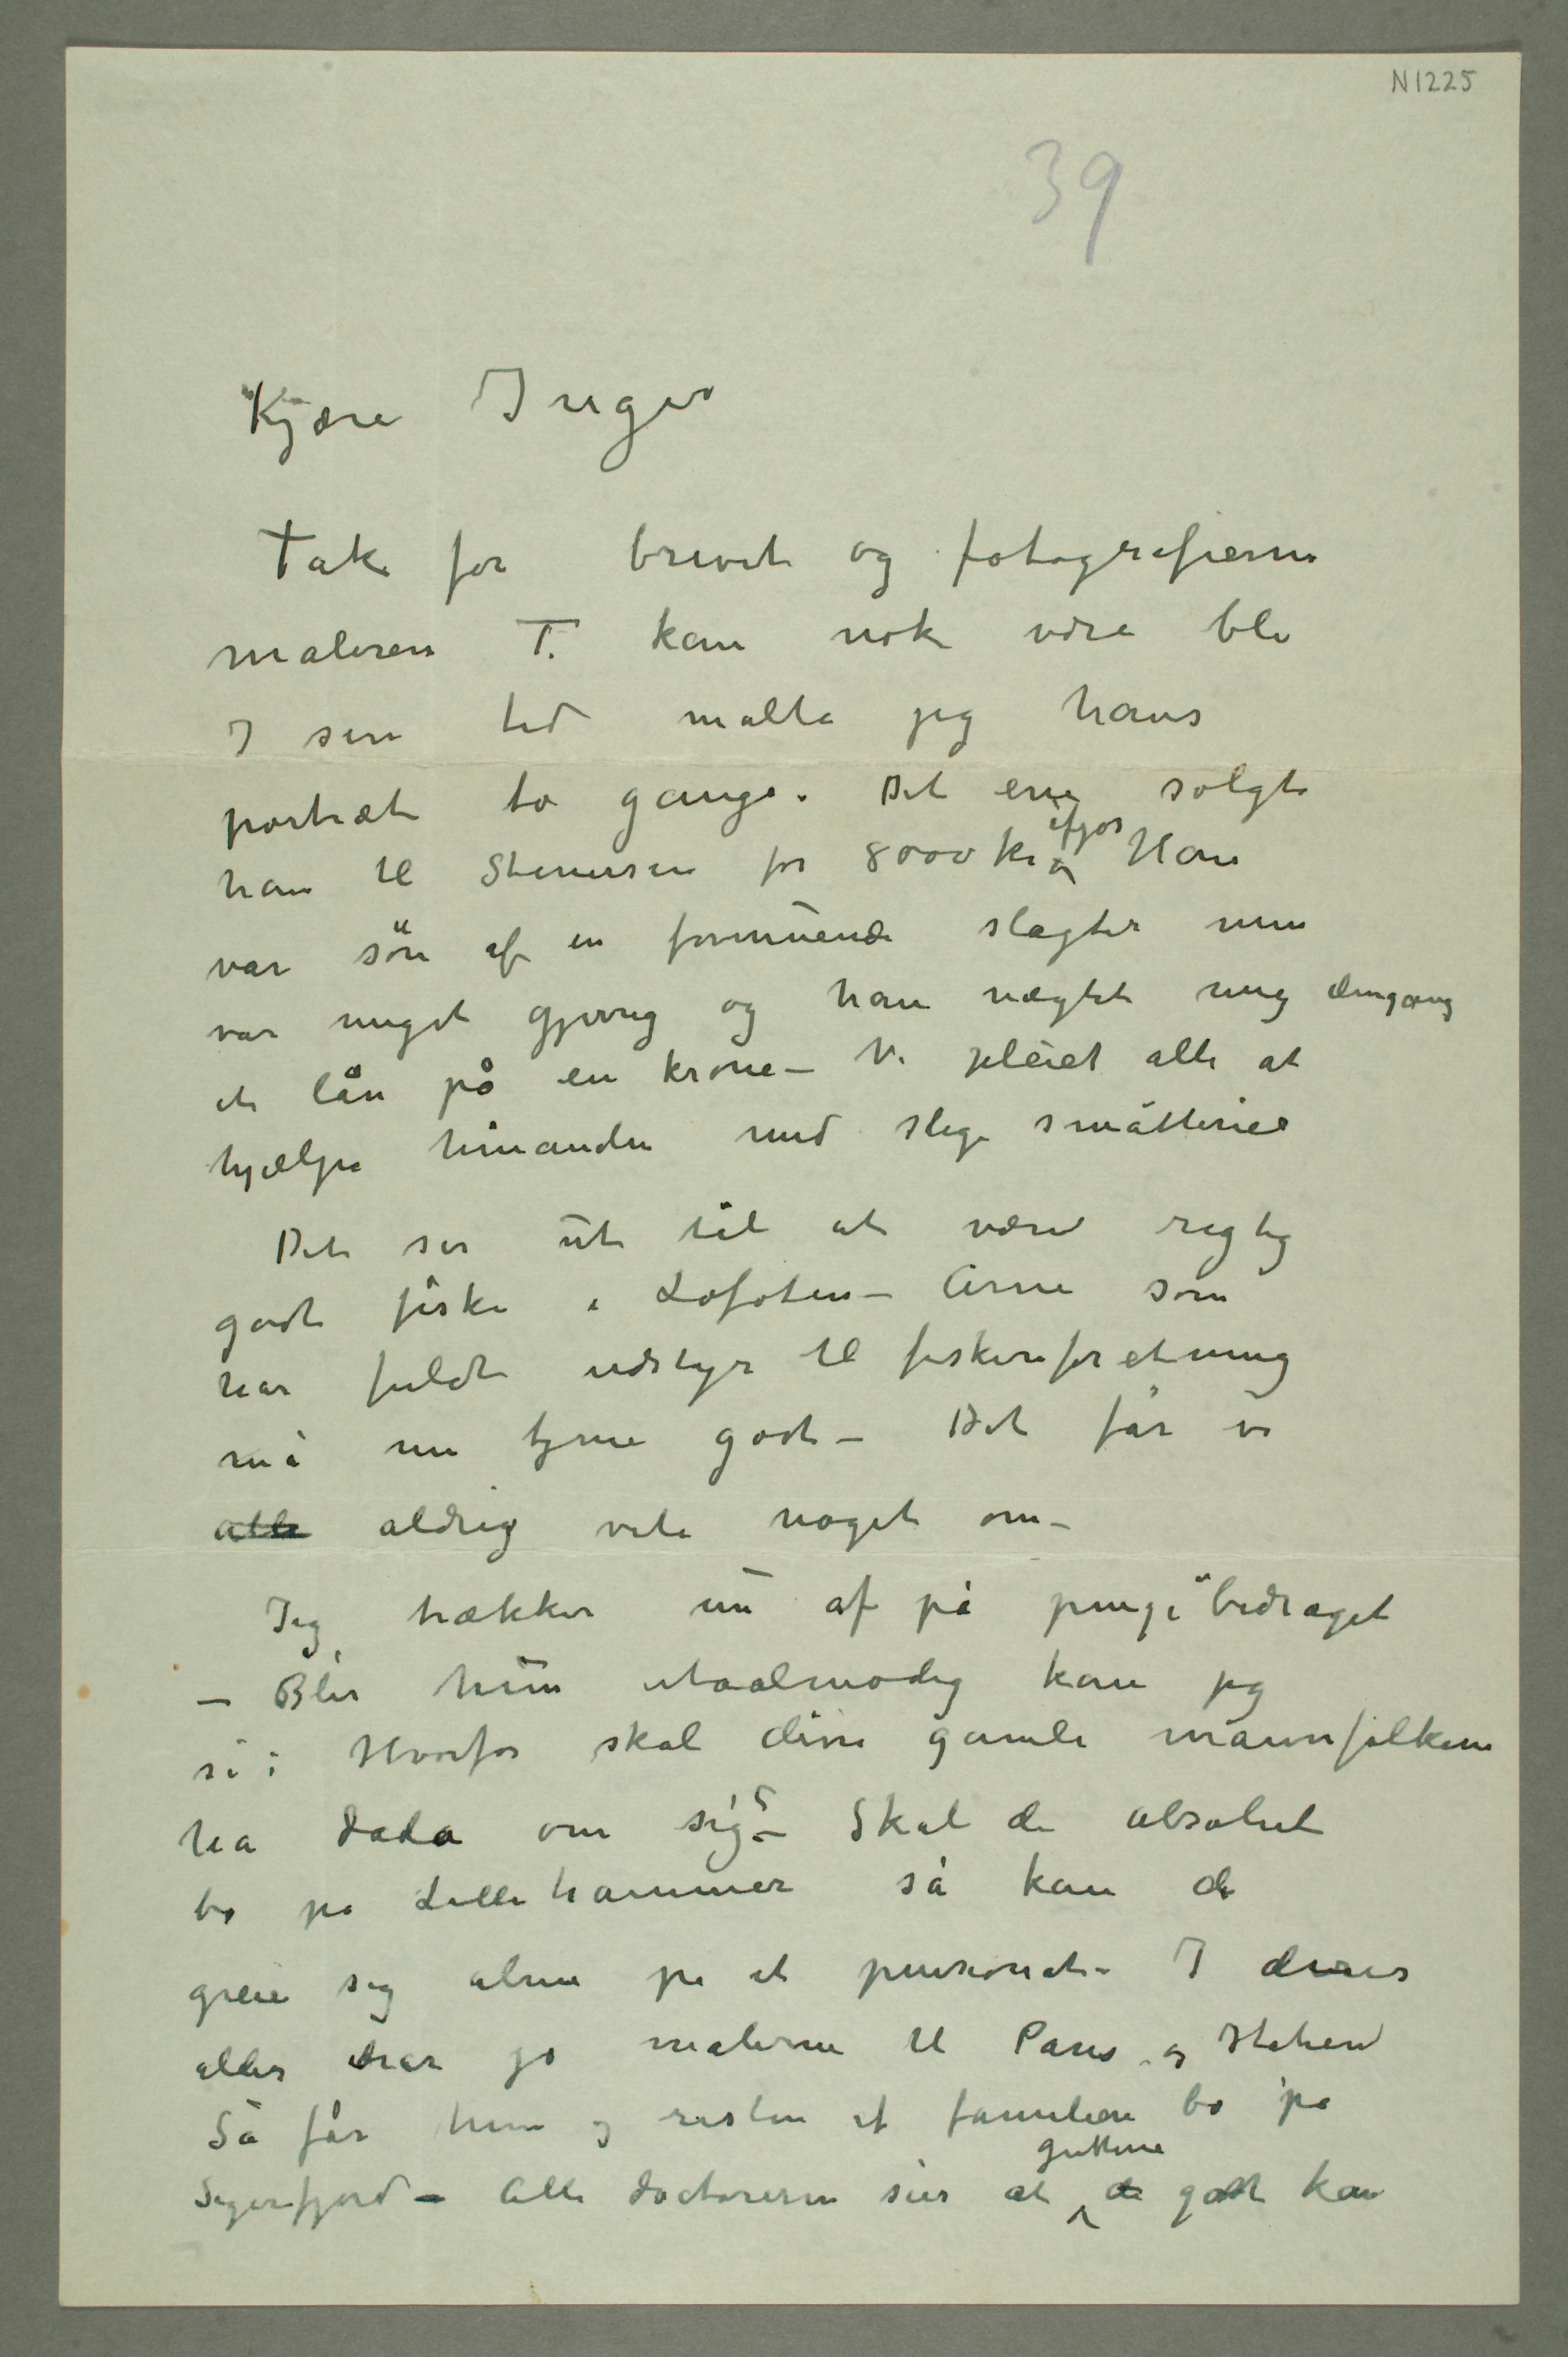 N1225
39
Kjære Inger
Tak for brevet og fotografierne
maleren T. kan nok være ble
I sin tid malte jeg hans
portræt to gange. Det ene solgte
han til Stenersen for 8000 kr ifjor Han
var søn af en formuende slagter men
var meget gjerrig og han nægtet mig dengang
et lån på en krone – Vi pleiet alle at
hjælpe hinanden med slige småtterier
Det ser ut til at være rigtig
godt fiske i Lofoten – Arne som
har fuldt udstyr til fiskeriforetning
må nu tjene godt – Det får vi
alle aldrig vite noget om –
Jeg trækker nu af på pengebidraget
– Blir hun utaalmodig kan jeg
si: Hvorfor skal disse gamle mannfolkene
ha dada om sig? – Skal de absolut
bo på Lillehammer så kan de
greie sig alene på et pensionat – I deres
alder drar jo malerne til Paris og Italien
Så får hun og resten af familien bo på
Sigerfjord – Alle doctorerne sier at guttene de godt kan